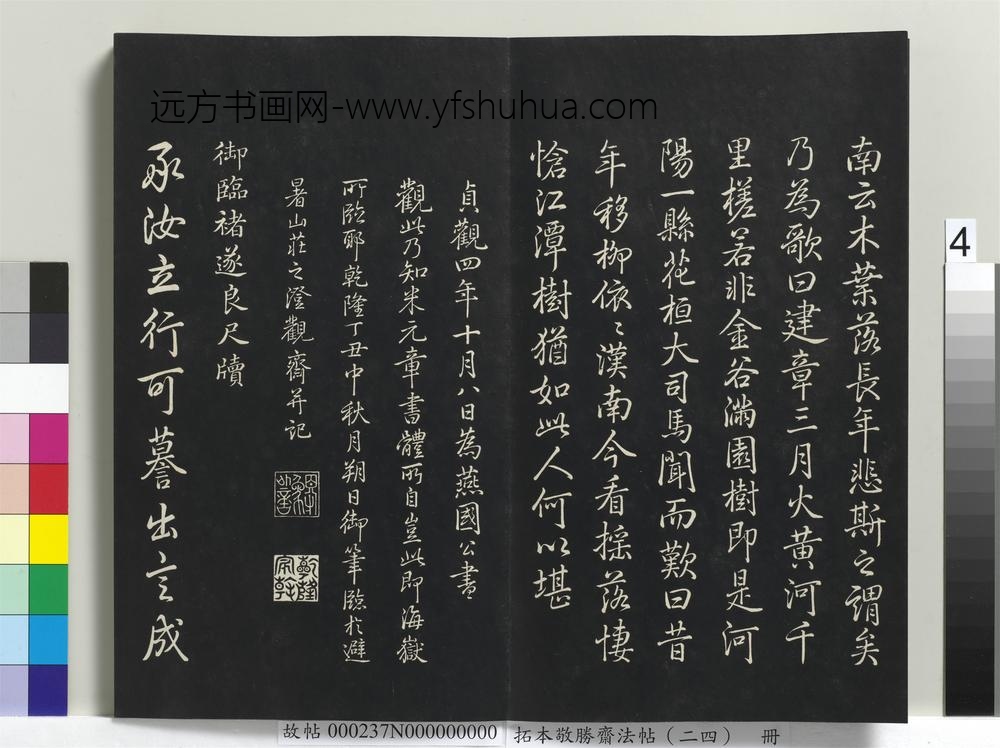 远方书画网-www.yfshuhua.com
南云木葉落長年悲斯之謂矣
乃為歌曰建章三月火黃河千
里槎若非金谷滿園樹即是河
陽一縣花桓大司馬聞而歎曰昔
年移柳依〻漢南今看搖落悽
愴江潭樹猶如此人何以堪
貞觀四年十月八日為燕國公書
觀此乃知米元章書體所自豈此即海嶽
所臨耶乾隆丁丑中秋月朔日御筆臨於避
暑山莊之澄觀齋并記
乾隆
御臨褚遂良尺牘
承汝立行可蓦出言成
4
故帖 000237N000000000 拓本敬勝齋法帖（二四） 冊